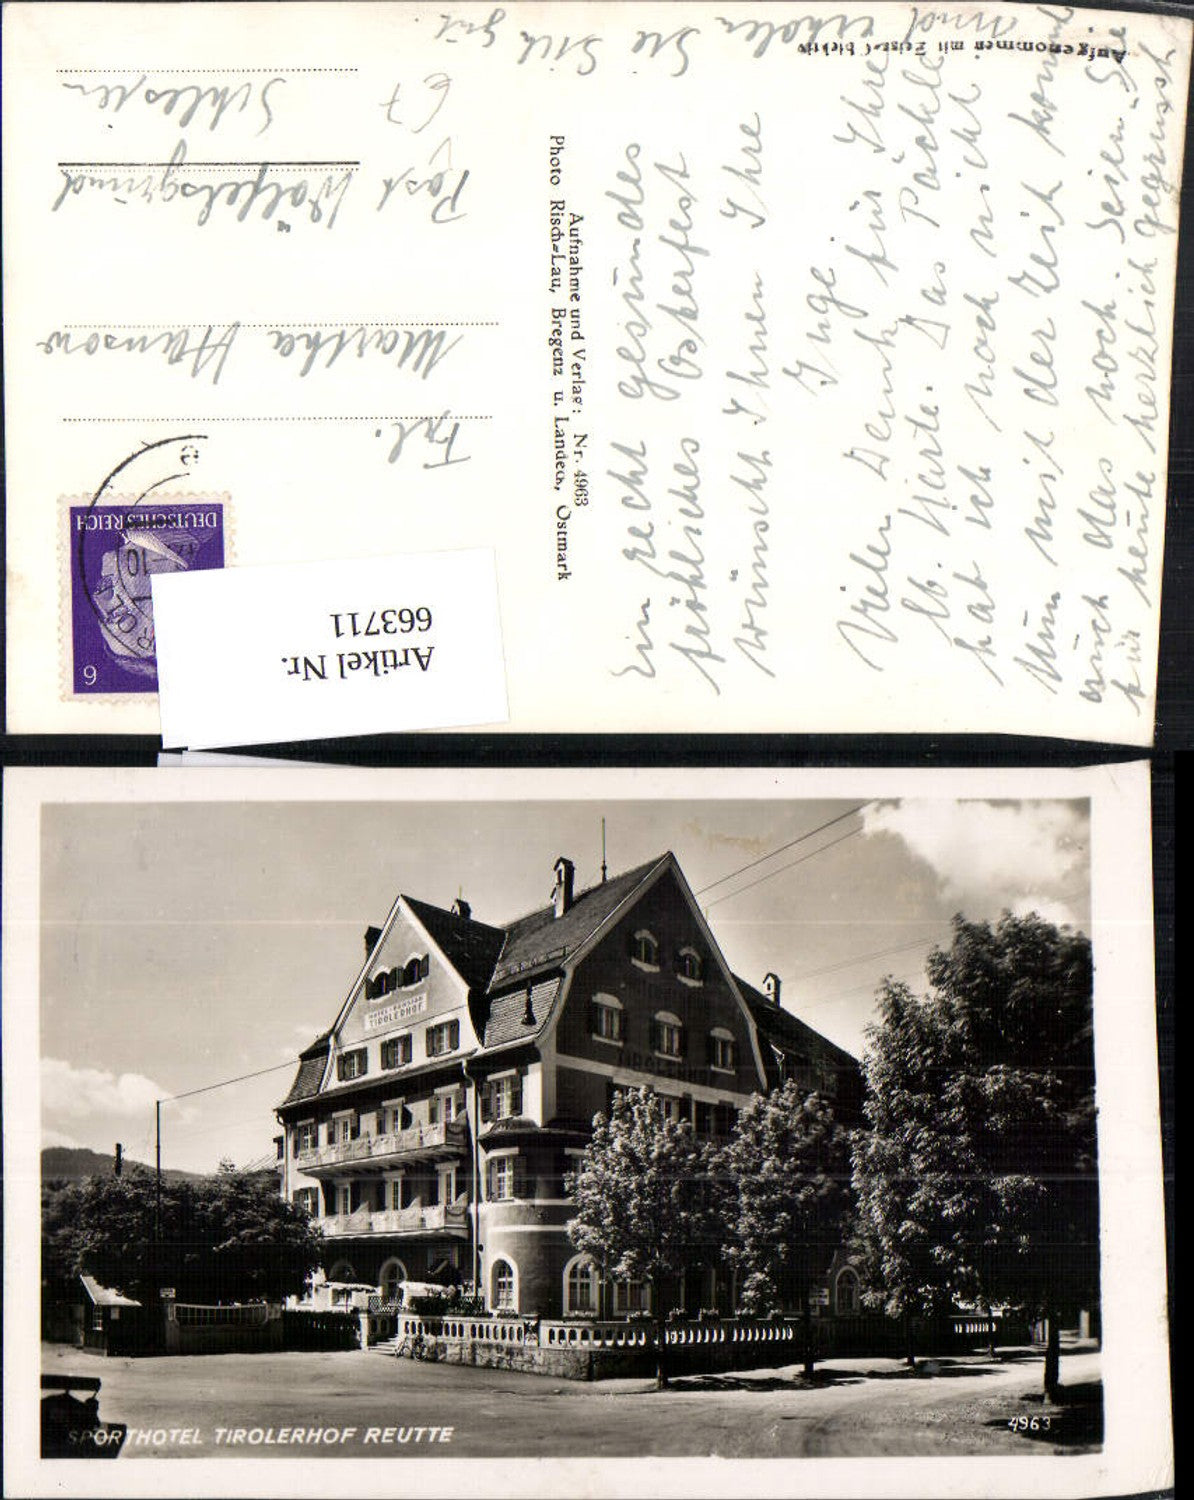 Aufgenommen mit Zeiss-Objektiv
Ein recht gesundes
fröhliches Osterfest
wünscht Ihnen Ihre
Inge
Vielen Dank für Ihre
lb. Karte. Das Päckle
hab ich noch nicht.
Nun mit der Zeit kommt
auch das noch. Seien Sie
für heute herzlich gegrüsst
und erholen Sie Sich gut
Aufnahme und Verlag: Nr. 4963
Photo Risch-Lau, Bregenz u. Landeck, Ostmark
DEUTSCHES REICH
6
Frl.
Martha Hanson
Post Wölfelsgrund
Schlesien
Artikel Nr.
663711
TIROLERHOF
TIROLERHOF
SPORTHOTEL TIROLERHOF REUTTE
4963